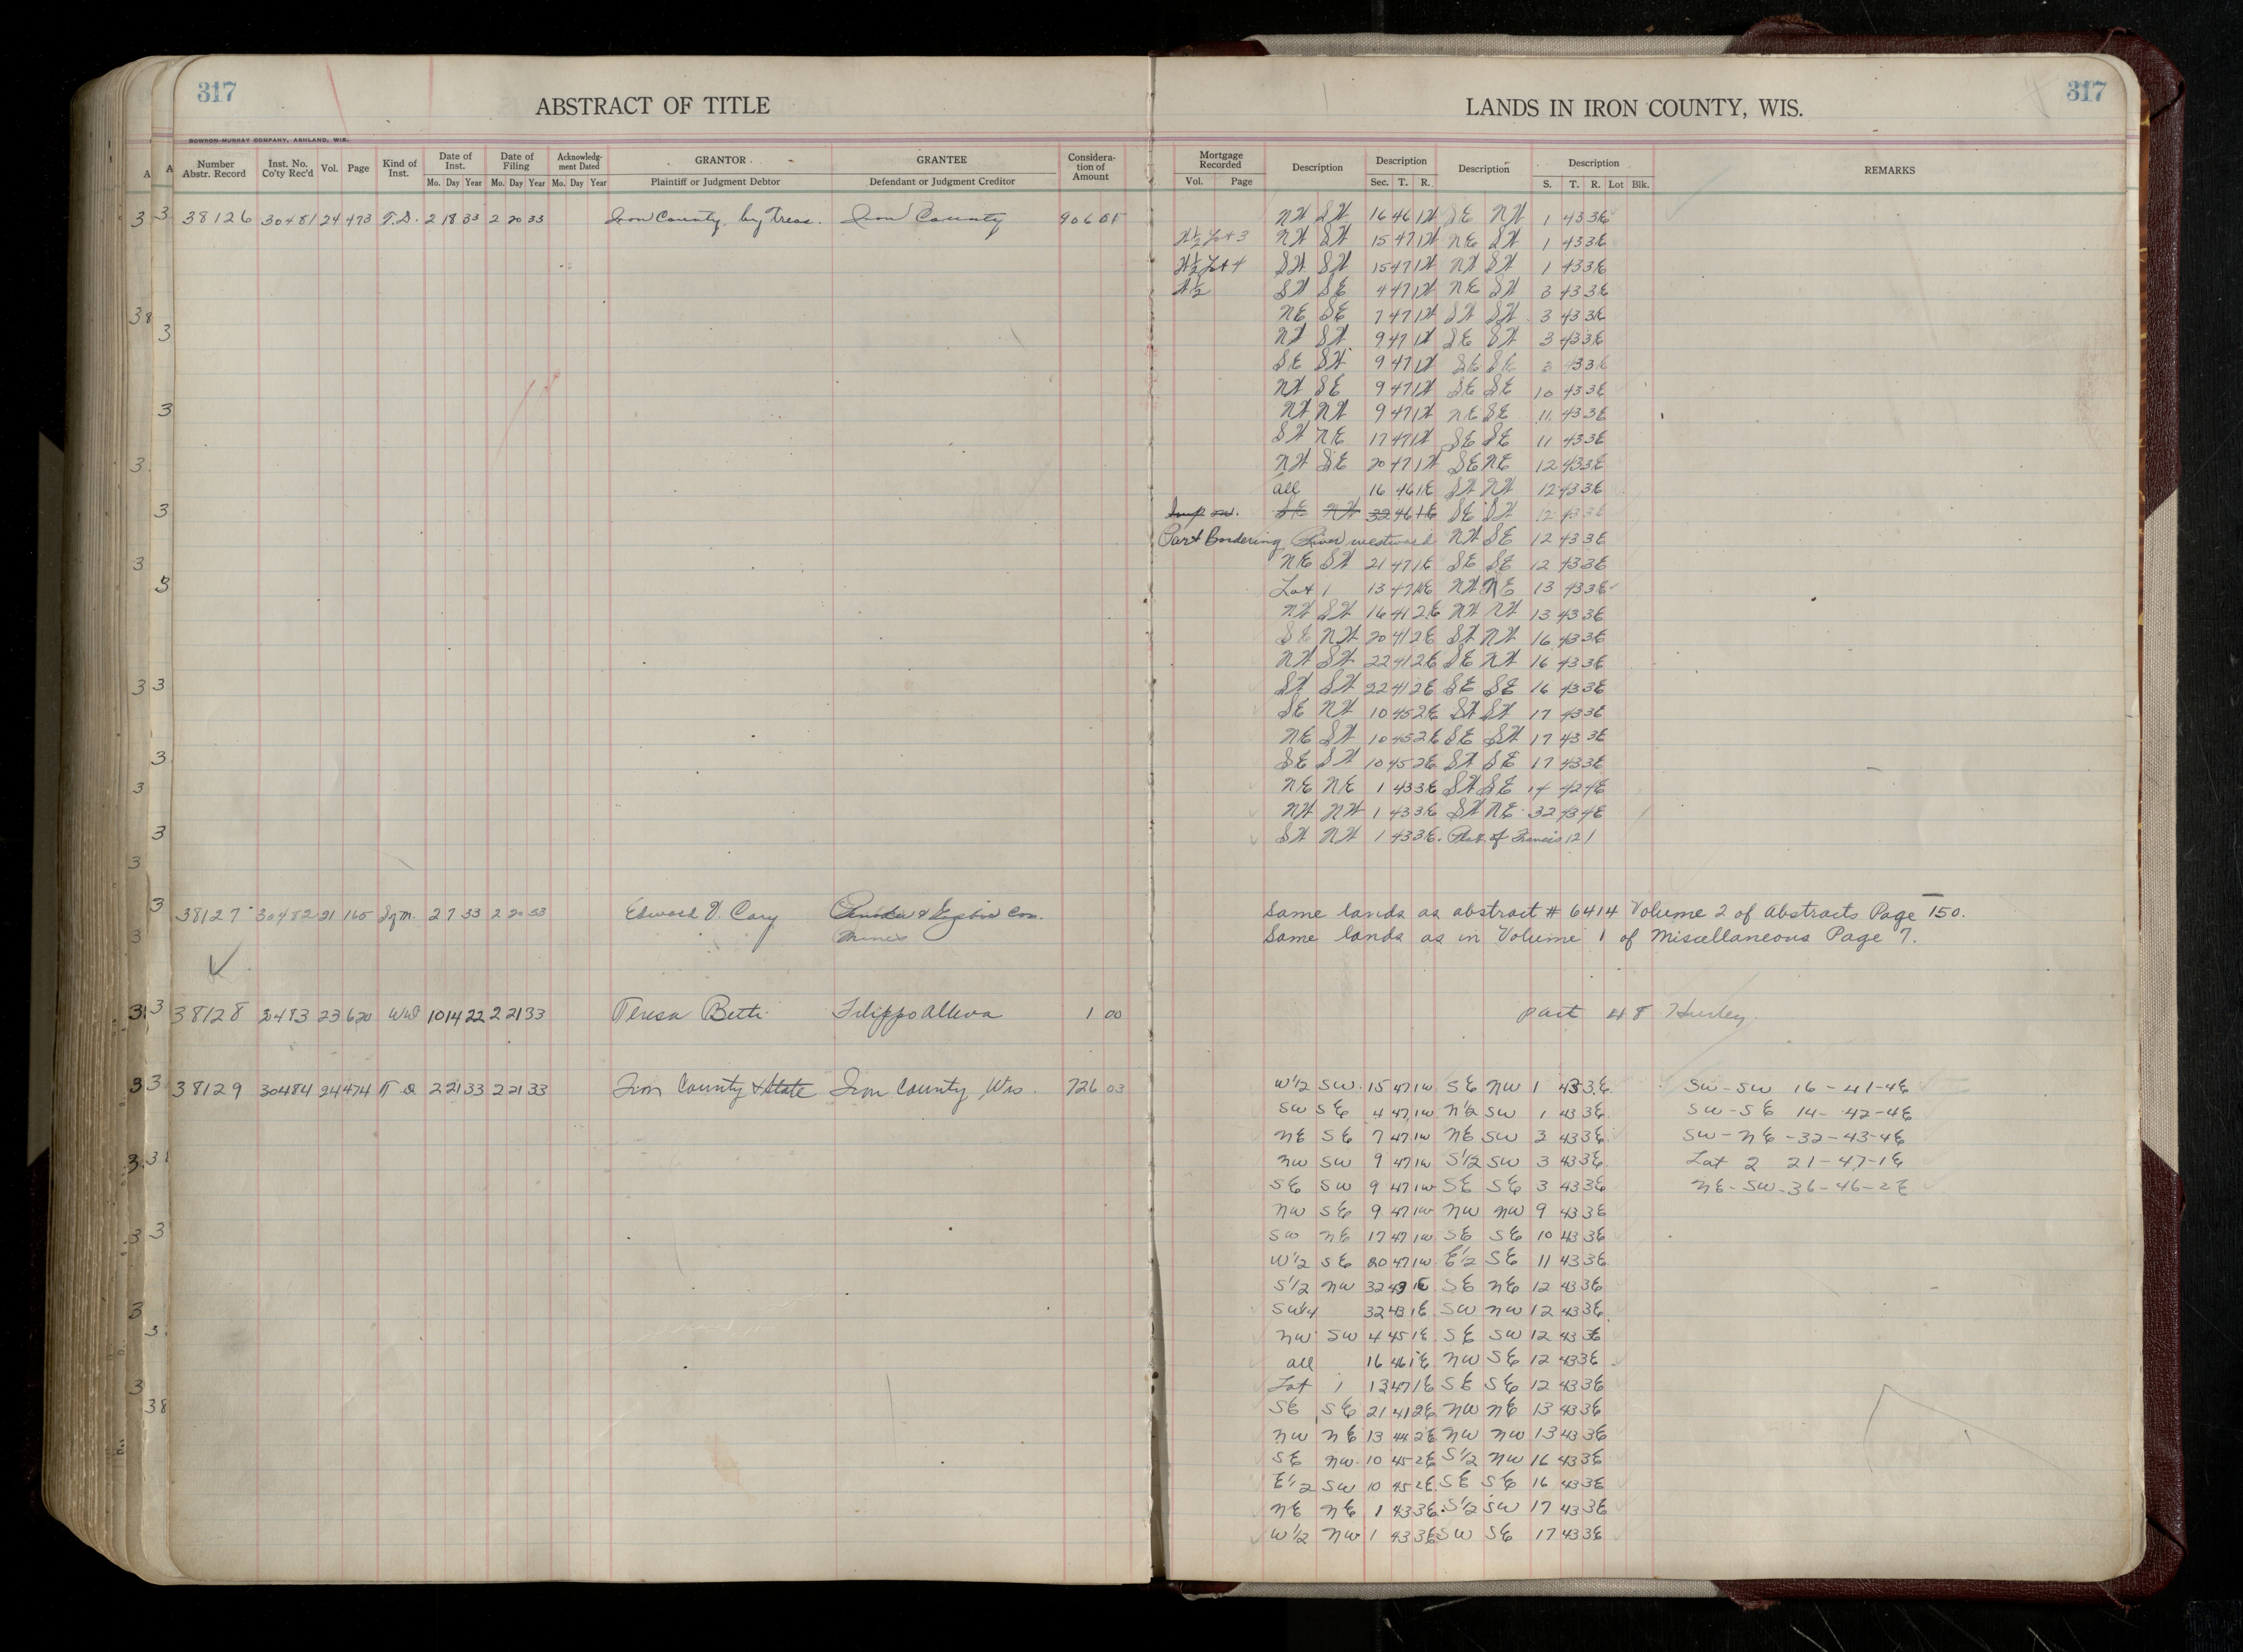 317
ABSTRACT OF TITLE
LANDS IN IRON COUNTY, WIS.
317
BOWRON-MURRAY COMPANY, ASHLAND, WIS.
Number Abstr. Record | Inst. No. Co'ty Rec'd | Vol. | Page | Kind of Inst. | Date of Inst. Mo. Day Year | Date of Filing Mo. Day Year | Acknowledg-ment Dated Mo. Day Year | GRANTOR Plaintiff or Judgment Debtor | GRANTEE Defendant or Judgment Creditor | Considera-tion of Amount | Mortgage Recorded Vol. Page | Description | Description Sec. T. R. | Description | Description S. T. R. Lot Blk. | REMARKS
38126 30481 24 473 T.D. 2 18 33 2 20 33 Iron County by Treas. Iron County 906 05 NW SW 16 46 1W SE NW 1 43 3E
W½ Lot 3 NW SW 15 47 1W NE SW 1 43 3E
W½ Lot 4 SW SW 15 47 1W NW SW 1 43 3E
W½ SW SE 4 47 1W NE SW 3 43 3E
NE SE 7 47 1W SW SW 3 43 3E
NW SW 9 47 1W SE SW 3 43 3E
SE SW 9 47 1W SE SE 3 43 3E
NW SE 9 47 1W SE SE 10 43 3E
NW NW 9 47 1W NE SE 11 43 3E
SW NE 17 47 1W SE SE 11 43 3E
NW SE 20 47 1W SE NE 12 43 3E
all 16 46 1E SW NW 12 43 3E
Imp on. SE NW 32 46 1E SE SW 12 43 3E
Part Bordering River westward NW SE 12 43 3E
NE SW 21 47 1E SE SE 12 43 3E
Lot 1 13 47 1E NW NE 13 43 3E
NW SW 16 41 2E NW NW 13 43 3E
SE NW 20 41 2E SW NW 16 43 3E
NW SW 22 41 2E SE NW 16 43 3E
SW SW 22 41 2E SE SE 16 43 3E
SE NW 10 45 2E SW SW 17 43 3E
NE SW 10 45 2E SE SW 17 43 3E
SE SW 10 45 2E SW SE 17 43 3E
NE NE 1 43 3E SW SE 14 42 4E
NW NW 1 43 3E SW NE 32 43 4E
SW NW 1 43 3E. Plat of Francis 12 1
38127 30482 21 165 2 7 33 2 20 33 Edward V. Cary Mines Same lands as abstract # 6414 Volume 2 of Abstracts Page 150.
Same lands as in Volume 1 of Miscellaneous Page 7.
38128 23 620 WD 10 14 22 2 21 33 Teresa Betti Filippo Alleva 1 00 part 4 8 Hurley.
38129 30484 24 474 T D 2 21 33 2 21 33 Iron County & State Iron County, Wis. 726 03 W½ SW 15 47 1W SE NW 1 43 3E SW-SW 16-41-4E
SW SE 4 47 1W N½ SW 1 43 3E SW-SE 14-42-4E
NE SE 7 47 1W NE SW 3 43 3E SW-NE-32-43-4E
NW SW 9 47 1W S½ SW 3 43 3E Lot 2 21-47-1E
SE SW 9 47 1W SE SE 3 43 3E NE-SW-36-46-2E
NW SE 9 47 1W NW NW 9 43 3E
SW NE 17 47 1W SE SE 10 43 3E
W½ SE 20 47 1W E½ SE 11 43 3E
S½ NW 32 43 1E SE NE 12 43 3E
SW¼ 32 43 1E SW NW 12 43 3E
NW SW 4 45 1E SE SW 12 43 3E
all 16 46 1E NW SE 12 43 3E
Lot 1 13 47 1E SE SE 12 43 3E
SE SE 21 41 2E NW NE 13 43 3E
NW NE 13 44 2E NW NW 13 43 3E
SE NW 10 45 2E S½ NW 16 43 3E
E½ SW 10 45 2E SE SE 16 43 3E
NE NE 1 43 3E S½ SW 17 43 3E
W½ NW 1 43 3E SW SE 17 43 3E